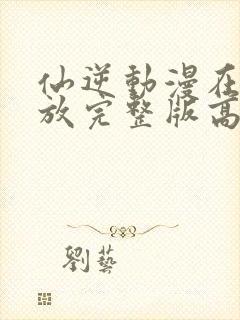 仙逆動漫在
放完整版高
劉藝